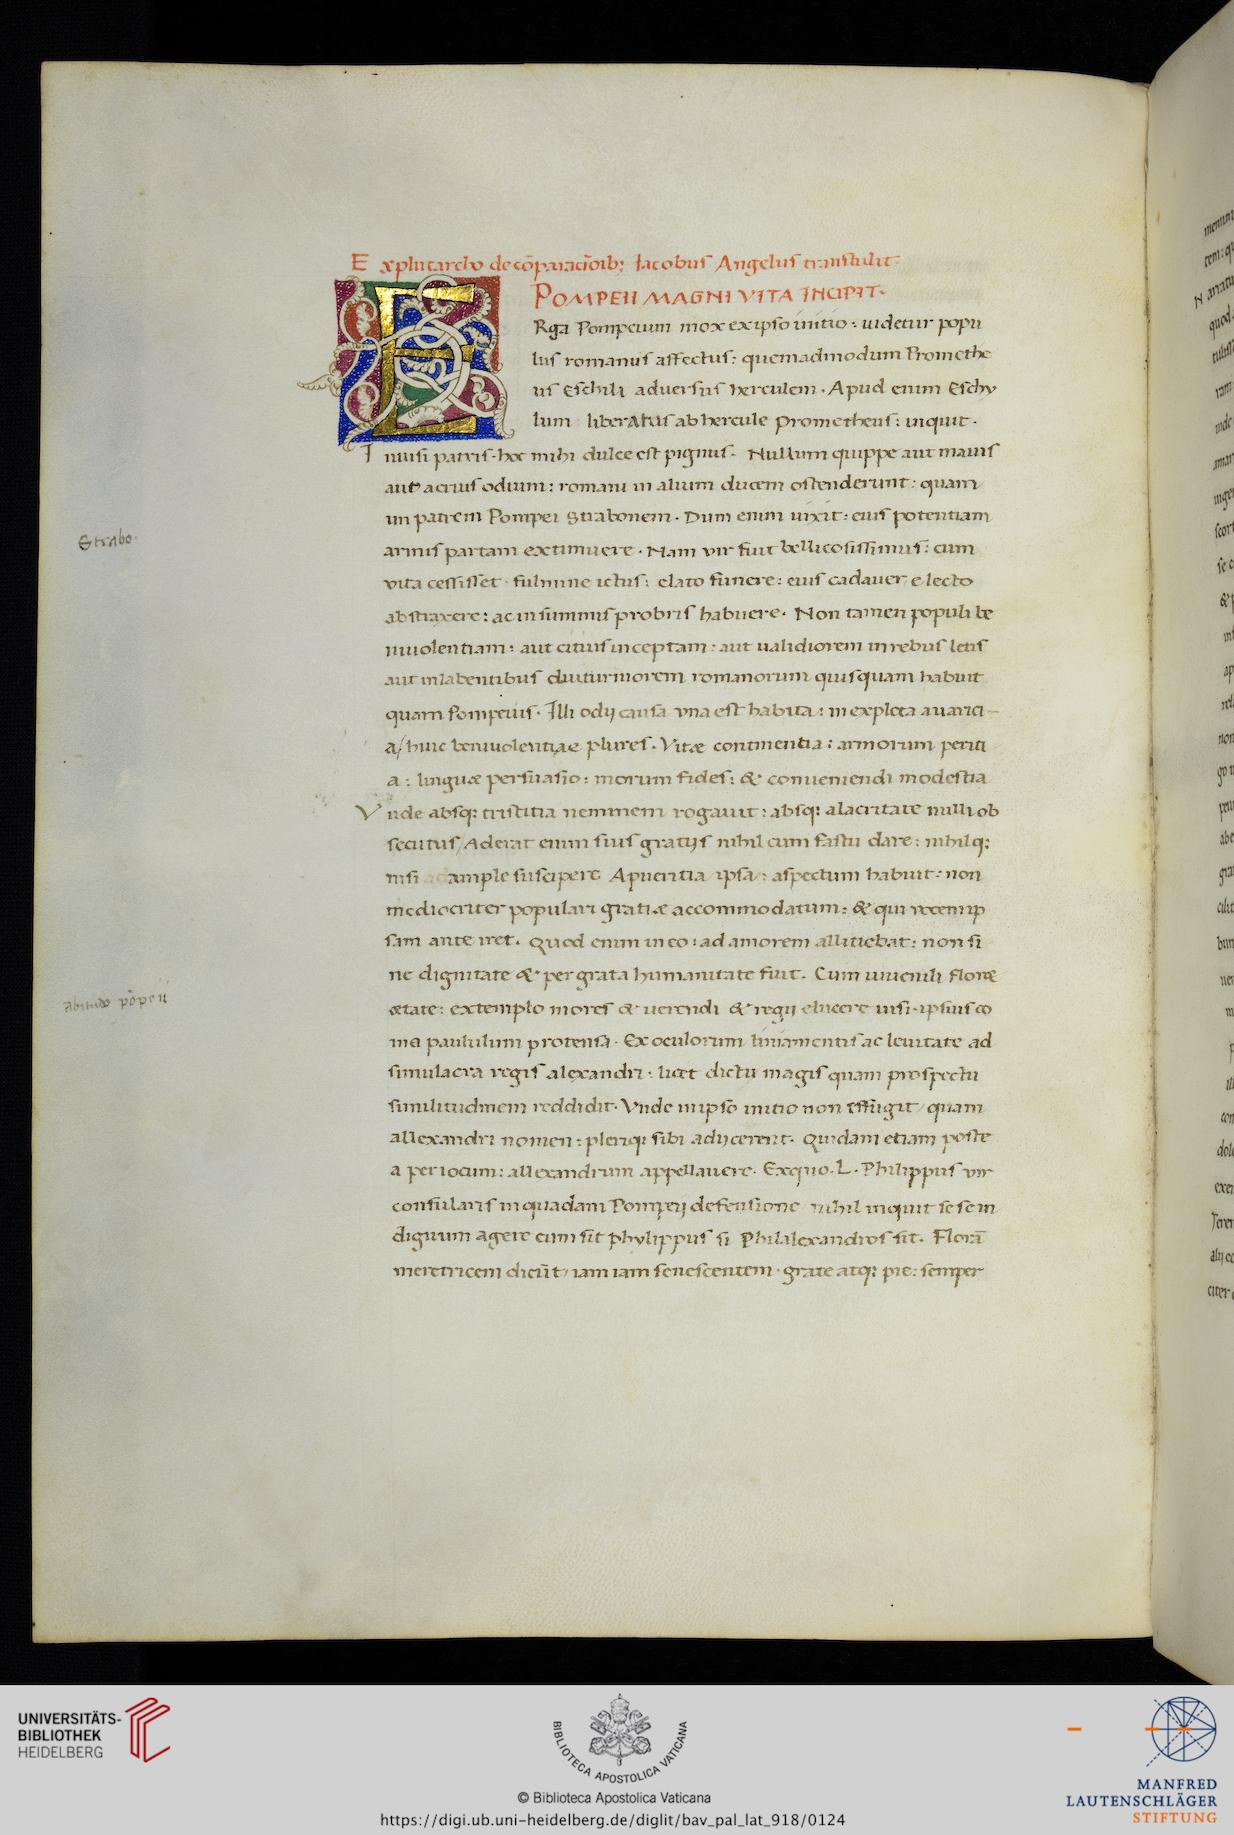 Ex plutarcho de cōparacīoib; Iacobus Angelus transtulit
POMPEII MAGNI VITA INCIPIT.
ERga Pompeium mox ex ipso initio: uidetur popu
lus romanus affectus: quemadmodum Promethe
us Eschili aduersus herculem. Apud enim Eschy
lum liberatus ab hercule Prometheus: inquit.
Inuisi patris. hoc mihi dulce est pignus. Nullum quippe aut mauis
aut acrius odium: romani in alium ducem ostenderunt: quam
in patrem Pompei Strabonem. Dum enim uixit: eius potentiam
armis partam extimuere. Nam vir fuit bellicosissimus: cum
vita cessisset fulmine ictus: elato funere: eius cadauer e lecto
abstraxere: ac in summis probris habuere. Non tamen populi be
niuolentiam: aut citius inceptam: aut ualidiorem in rebus letis
aut in labentibus diuturniorem romanorum quisquam habuit
quam Pompeius. Illi odij causa vna est habita: inexpleta auarici
a/huic beniuolentiae plures. Vitæ continentia: armorum periti
a: linguæ persuasio: morum fides: & conueniendi modestia
Vnde absq; tristitia neminem rogauit: absq; alacritate nulli ob
secutus/Aderat enim suis gratijs nihil cum fastu dare: nihilq;
nisi ample suscipere A pueritia ipsa: aspectum habuit: non
mediocriter populari gratiæ accommodatum: & qui vocem ip
sam ante iret. Quod enim in eo: ad amorem allitiebat: non si
ne dignitate & per grata humanitate fuit. Cum iuuenili flore
ætate: extemplo mores & uerendi & regij elucere uisi. ipsius co
ma paululum protensa. Ex oculorum liniamentis ac leuitate ad
simulacra regis alexandri. licet dictu magis quam prospectu
similitudinem reddidit. Vnde in ipso initio non effugit/quam
allexandri nomen: pleriq; sibi adijcerent. Quidam etiam poste
a per iocum: allexandrum appellauere. Ex quo. L. Philippus vir
consularis in quadam Pompeij defensione nihil inquit se se in
dignum agere cum sit phylippus si Philalexandros sit. Florā
meretricem dicūt/iam iam senescentem. grate atq; pie: semper
Strabo.
pōpeii
UNIVERSITÄTS-
BIBLIOTHEK
HEIDELBERG
BIBLIOTECA APOSTOLICA VATICANA
© Biblioteca Apostolica Vaticana
https://digi.ub.uni-heidelberg.de/diglit/bav_pal_lat_918/0124
MANFRED
LAUTENSCHLÄGER
STIFTUNG